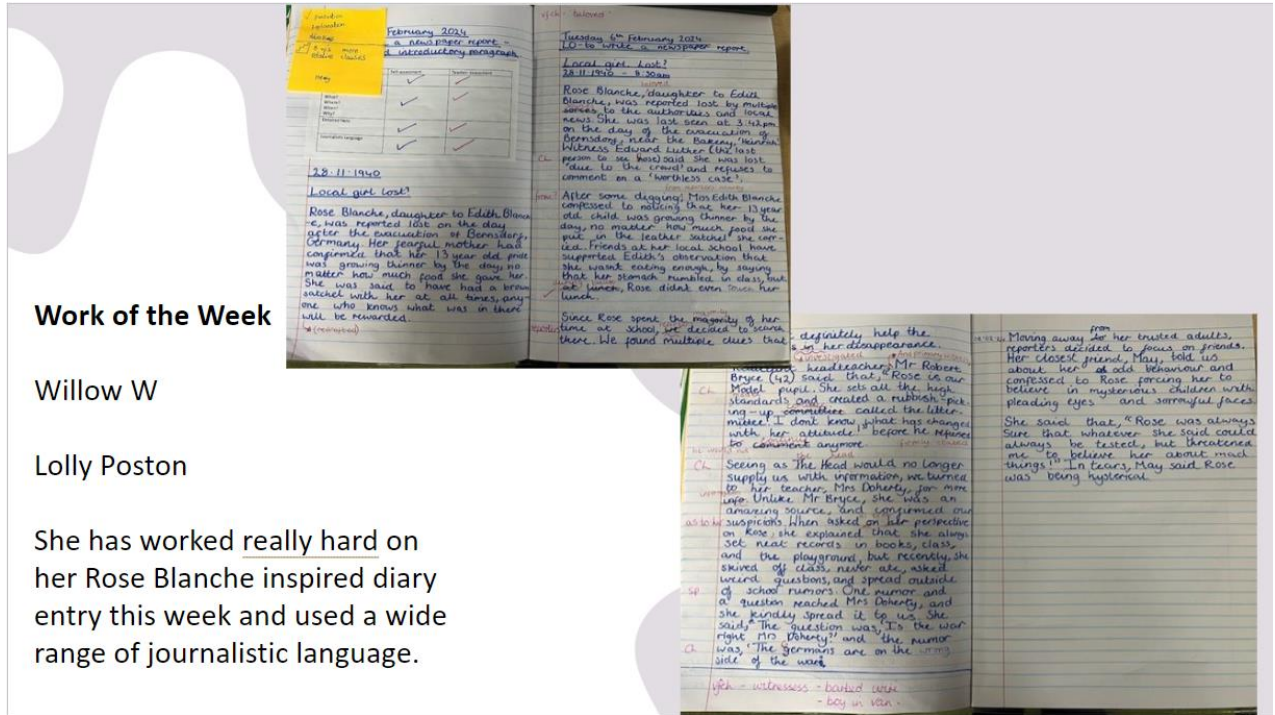 Work of the Week
Willow W
Lolly Poston
She has worked really hard on
her Rose Blanche inspired diary
entry this week and used a wide
range of journalistic language.
February 2024
a newspaper report -
introductory paragraph
28.11.1940
Local girl lost!
Rose Blanche, daughter to Edith Blanch
-e, was reported lost on the day
after the evacuation of Bernsdorg,
Germany. Her fearful mother had
confirmed that her 13 year old pride
was growing thinner by the day, no
matter how much food she gave her.
She was said to have had a brown
satchel with her at all times, any-
one who knows what was in there
will be rewarded.
vfch - beloved
Tuesday 6th February 2024
LO-to write a newspaper report
Local girl Lost!
28.11.1940 - 8:30am
Rose Blanche, daughter to Edith
Blanche, was reported lost by multiple
to the authorities and local
news. She was last seen at 3:42pm
on the day of the evacuation of
Bernsdorg, near the Bakery, 'Heinrich'
Witness Edward Luther (the last
person to see Rose) said she was lost
'due to the crowd' and refuses to
comment on a 'worthless case'.
After some digging, Mrs Edith Blanche
confessed to noticing that her 13 year
old child was growing thinner by the
day, no matter how much food she
put in the leather satchel she carr-
ied. Friends at her local school have
supported Edith's observation that
she wasnt eating enough, by saying
that her stomach rumbled in class, but
at lunch, Rose didnt even her
lunch.
Since Rose spent the magority of her
time at school, we decided to search
there. We found multiple clues that
definitely help the
in her disappearance.
headteacher, Mr Robert
Bryce (42) said that, "Rose is our
Model pupil. She sets all the high
standards and created a rubbish-pick
ing-up committee called the litter-
mittee! I dont know what has changed
with her attitude!" before he refused
to comment anymore.
Seeing as The Head would no longer
supply us with information, we turned
to her teacher, Mrs Doherty, for more
info. Unlike Mr Bryce, she was an
amazing source, and confirmed our
suspicions. When asked on her perspective
on Rose, she explained that she always
set neat records in books, class,
and the playground, but recently, she
skived off class, never ate, asked
weird questions, and spread outside
of school rumors. One rumor and
a queston reached Mrs Doherty, and
she kindly spread it to us. She
said, "The question was, 'Is the war
right Mrs Doherty?' and the rumor
was, 'The germans are on the wrong
side of the war.
vfch - witnessess - barbed wire
- boy in van.
Moving away from her trusted adults,
reporters decided to focus on friends.
Her closest friend, May, told us
about her odd behaviour and
confessed to Rose forcing her to
believe in mysterious children with
pleading eyes and sorrowful faces
She said that, "Rose was always
sure that whatever she said could
always be tested, but threatened
me to believe her about mad
things!" In tears, May said Rose
was being hysterical